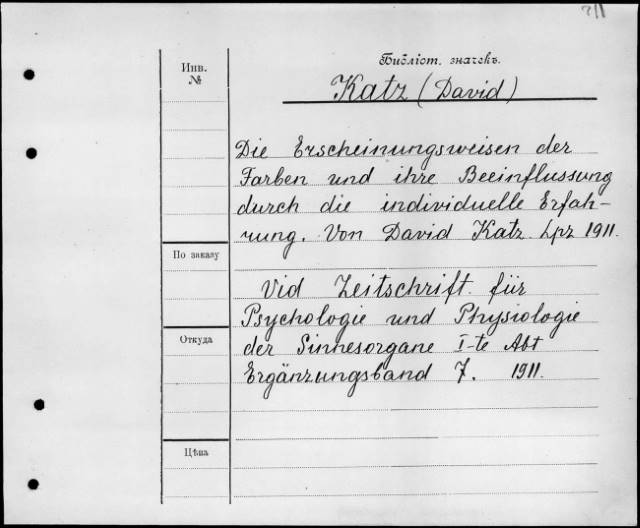 711
Библіот. значекъ.
Инв.
№
Katz (David)
Die Erscheinungsweisen der
Farben und ihre Beeinflussung
durch die individuelle Erfah-
rung. Von David Katz. Lpz 1911.
По заказу
Vid Zeitschrift für
Psychologie und Physiologie
der Sinnesorgane I-te Abt
Откуда
Ergänzungsband 7. 1911.
Цѣна